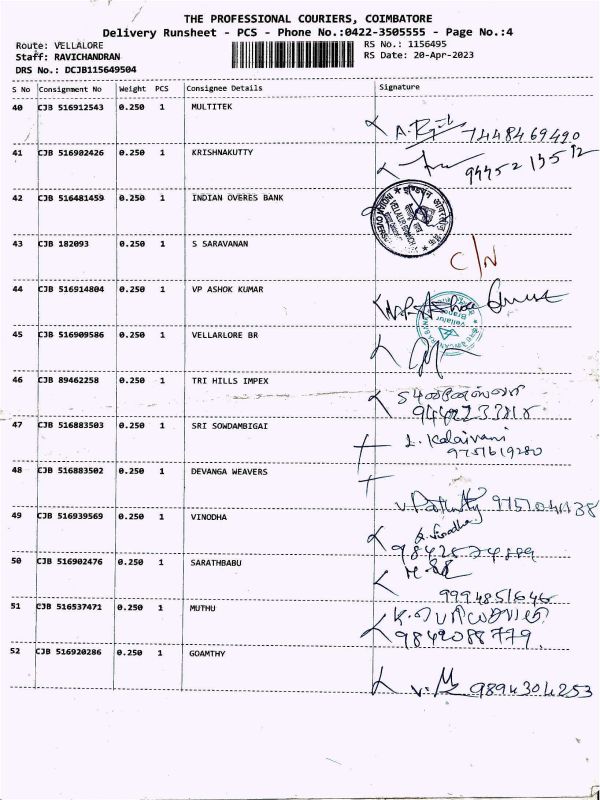 THE PROFESSIONAL COURIERS, COIMBATORE
Delivery Runsheet - PCS - Phone No.:0422-3505555 - Page No.:4
Route: VELLALORE RS No.: 1156495
Staff: RAVICHANDRAN RS Date: 20-Apr-2023
DRS No.: DCJB115649504
S No Consignment No Weight PCS Consignee Details Signature
40 CJB 516912543 0.250 1 MULTITEK
7448469490
41 CJB 516902426 0.250 1 KRISHNAKUTTY
42 CJB 516481459 0.250 1 INDIAN OVERES BANK
43 CJB 182093 0.250 1 S SARAVANAN
C/N
44 CJB 516914804 0.250 1 VP ASHOK KUMAR
45 CJB 516909586 0.250 1 VELLARLORE BR
46 CJB 89462258 0.250 1 TRI HILLS IMPEX
47 CJB 516883503 0.250 1 SRI SOWDAMBIGAI
L. Kalaivani
9751619280
48 CJB 516883502 0.250 1 DEVANGA WEAVERS
9751041138
49 CJB 516939569 0.250 1 VINODHA
50 CJB 516902476 0.250 1 SARATHBABU
9994851646
51 CJB 516537471 0.250 1 MUTHU
9842088779
52 CJB 516920286 0.250 1 GOAMTHY
9894304253